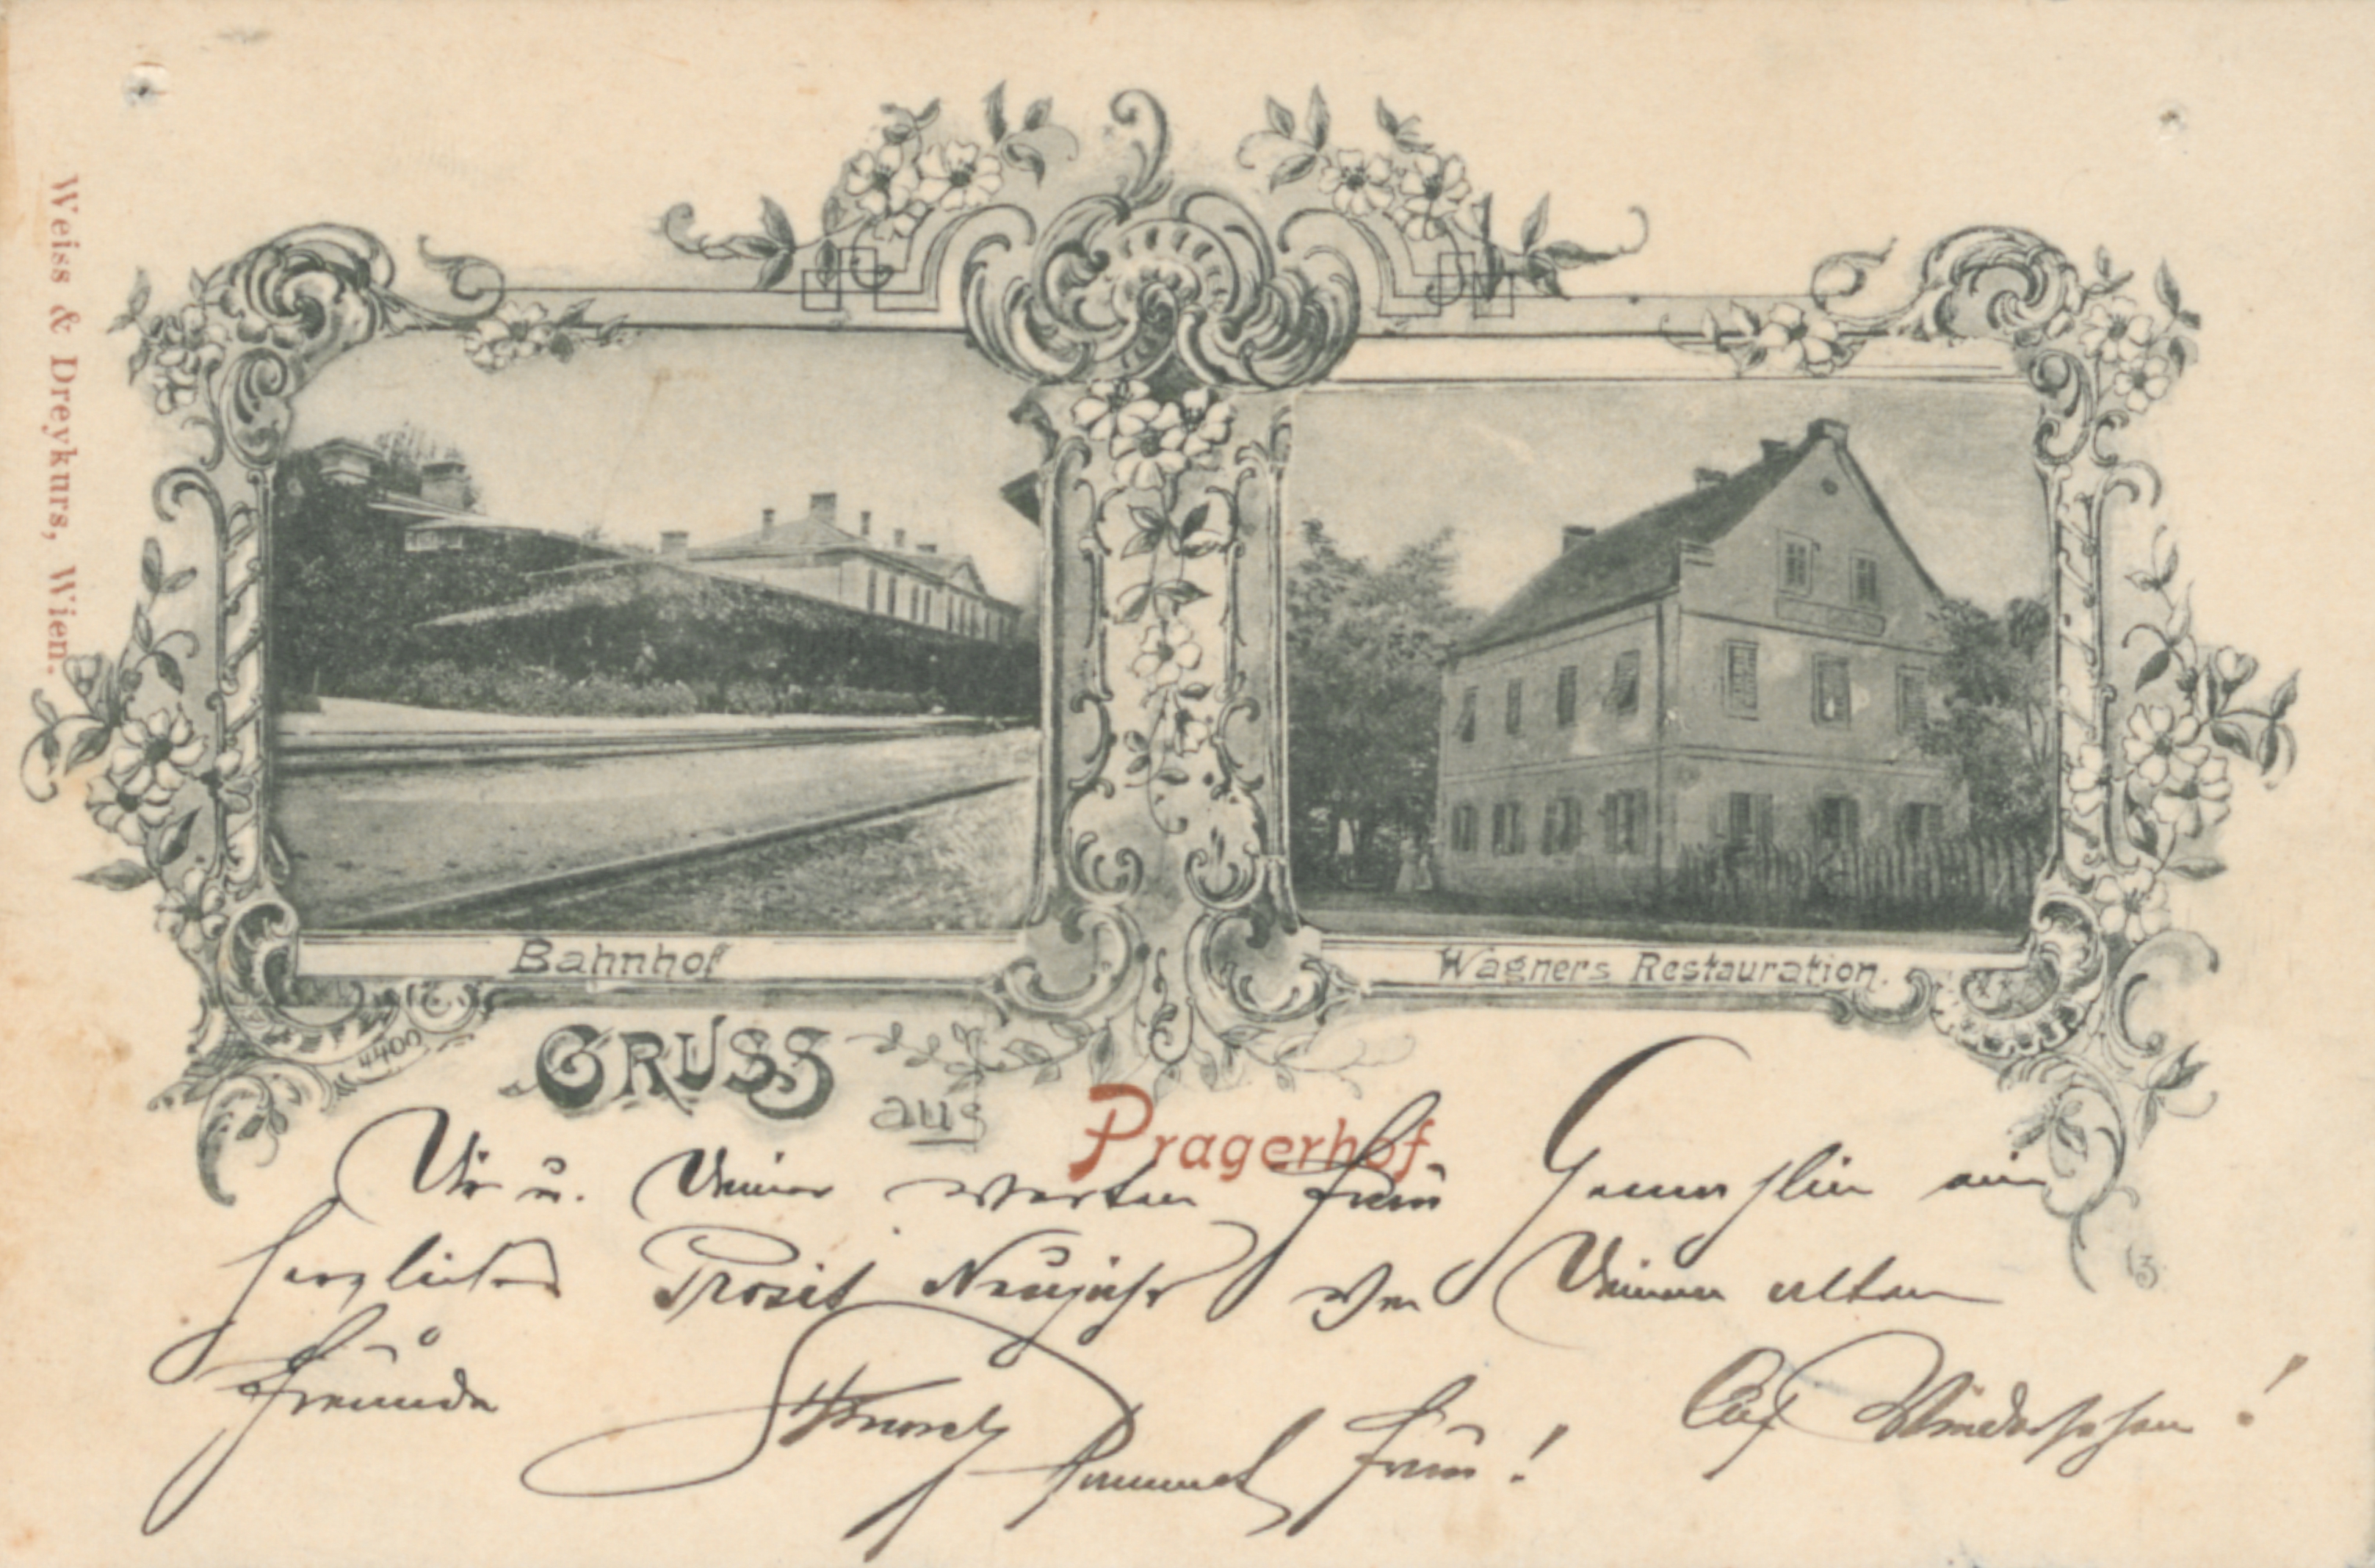 Weiss & Dreykurs, Wien.
Bahnhof
Wagners Restauration.
4400
GRUSS
aus
Pragerhof
Dir u. Deiner werten Frau Gemahlin ein
herzliches Prosit Neujahr von Deinem alten
Freunde
sammt Frau!
Auf Wiedersehen!